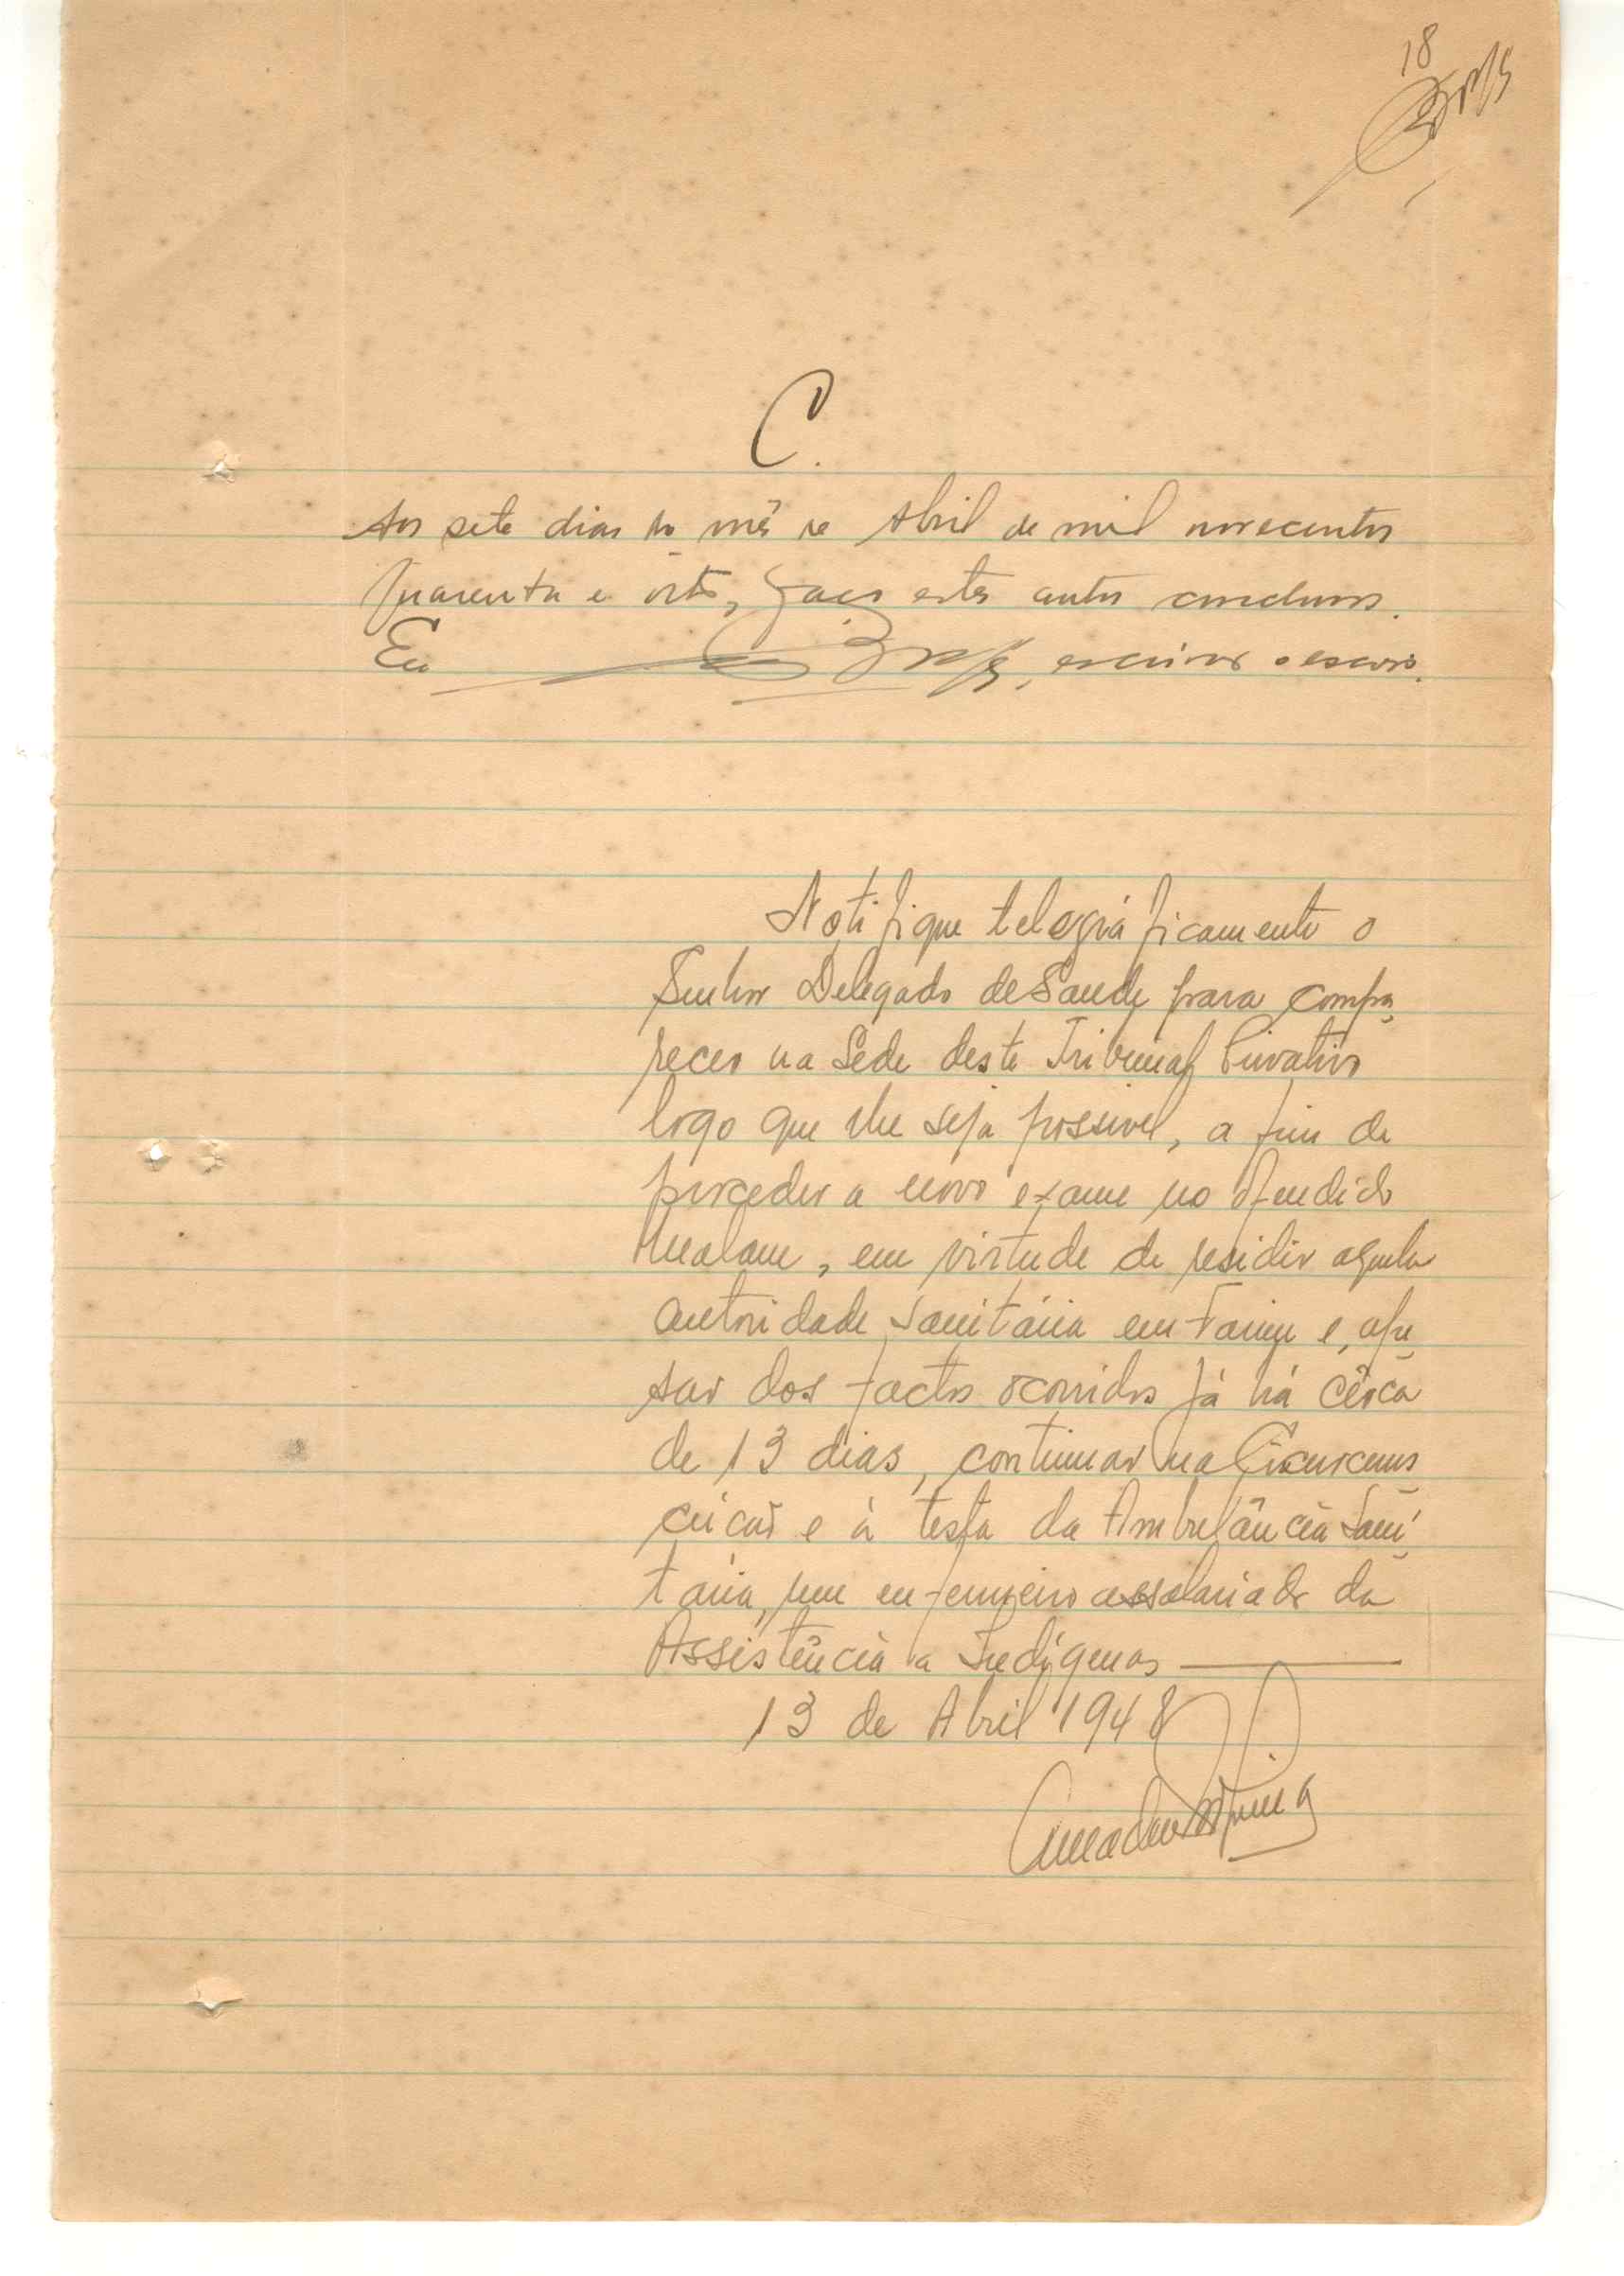 18
C.
Aos sete dias do mês de Abril de mil novecentos
quarenta e oito, faço estes autos conclusos.
Eu , escrivão o escrevi.
Notifique telegráficamente o
Senhor Delegado de Saude para compa
recer na Sede deste Tribunal Privativo
logo que lhe seja possivel, a fim de
proceder a novo exame no ofendido
Malam, em virtude de residir aquela
autoridade sanitária em Farim e, ape
sar dos factos ocorridos já há cêrca
de 13 dias, continuar na Circunscri
cão e à testa da Ambulância Sani
tária, um enfermeiro assalariado da
Assistência a Indígenas
13 de Abril 1948